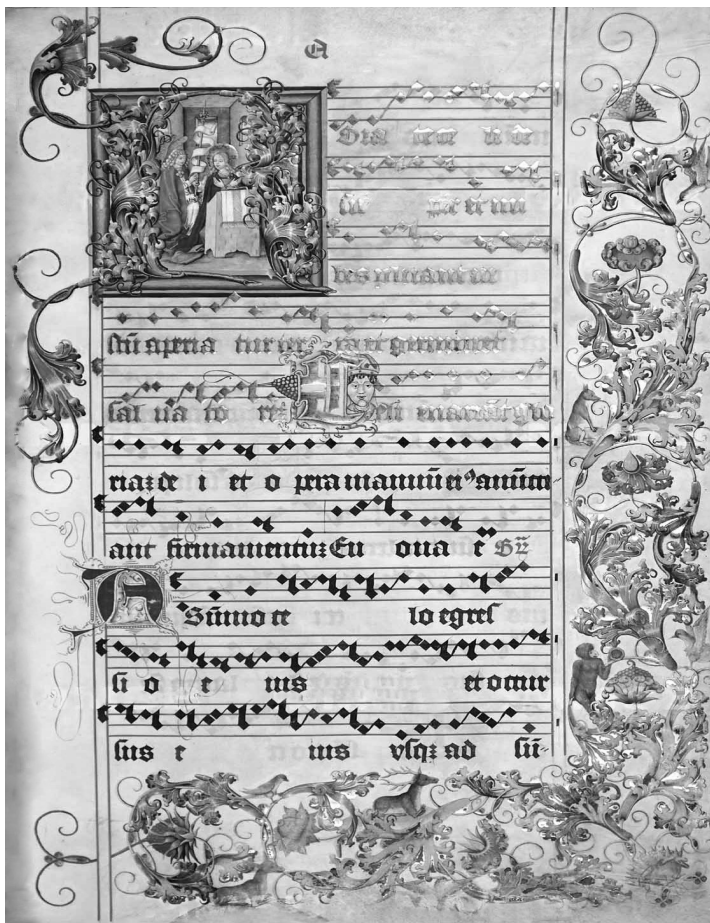 a
Rora te ce li de
su per et nu
bes pluant iu
stū aperia tur terra et germinet
sal ua to rē Celi enarrāt glo
riaꝫ de i et o pera manuū ei⁹ anūcci
ant firmamentuꝫ Eu oua e Gr̄
A Sūmo ce lo egres
si o e ius et occur
sus e ius vsqꝫ ad sū-